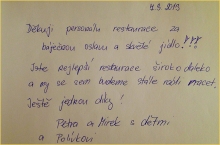 4.8.2013
Děkuji personalu restaurace za
báječnou oslavu a skvělé jídlo!!!
Jste nejlepší restaurace široko daleko
a my se sem budeme stále rádi vracet.
Ještě jednou díky!
Petra a Mirek s dětmi
a Polívkovi